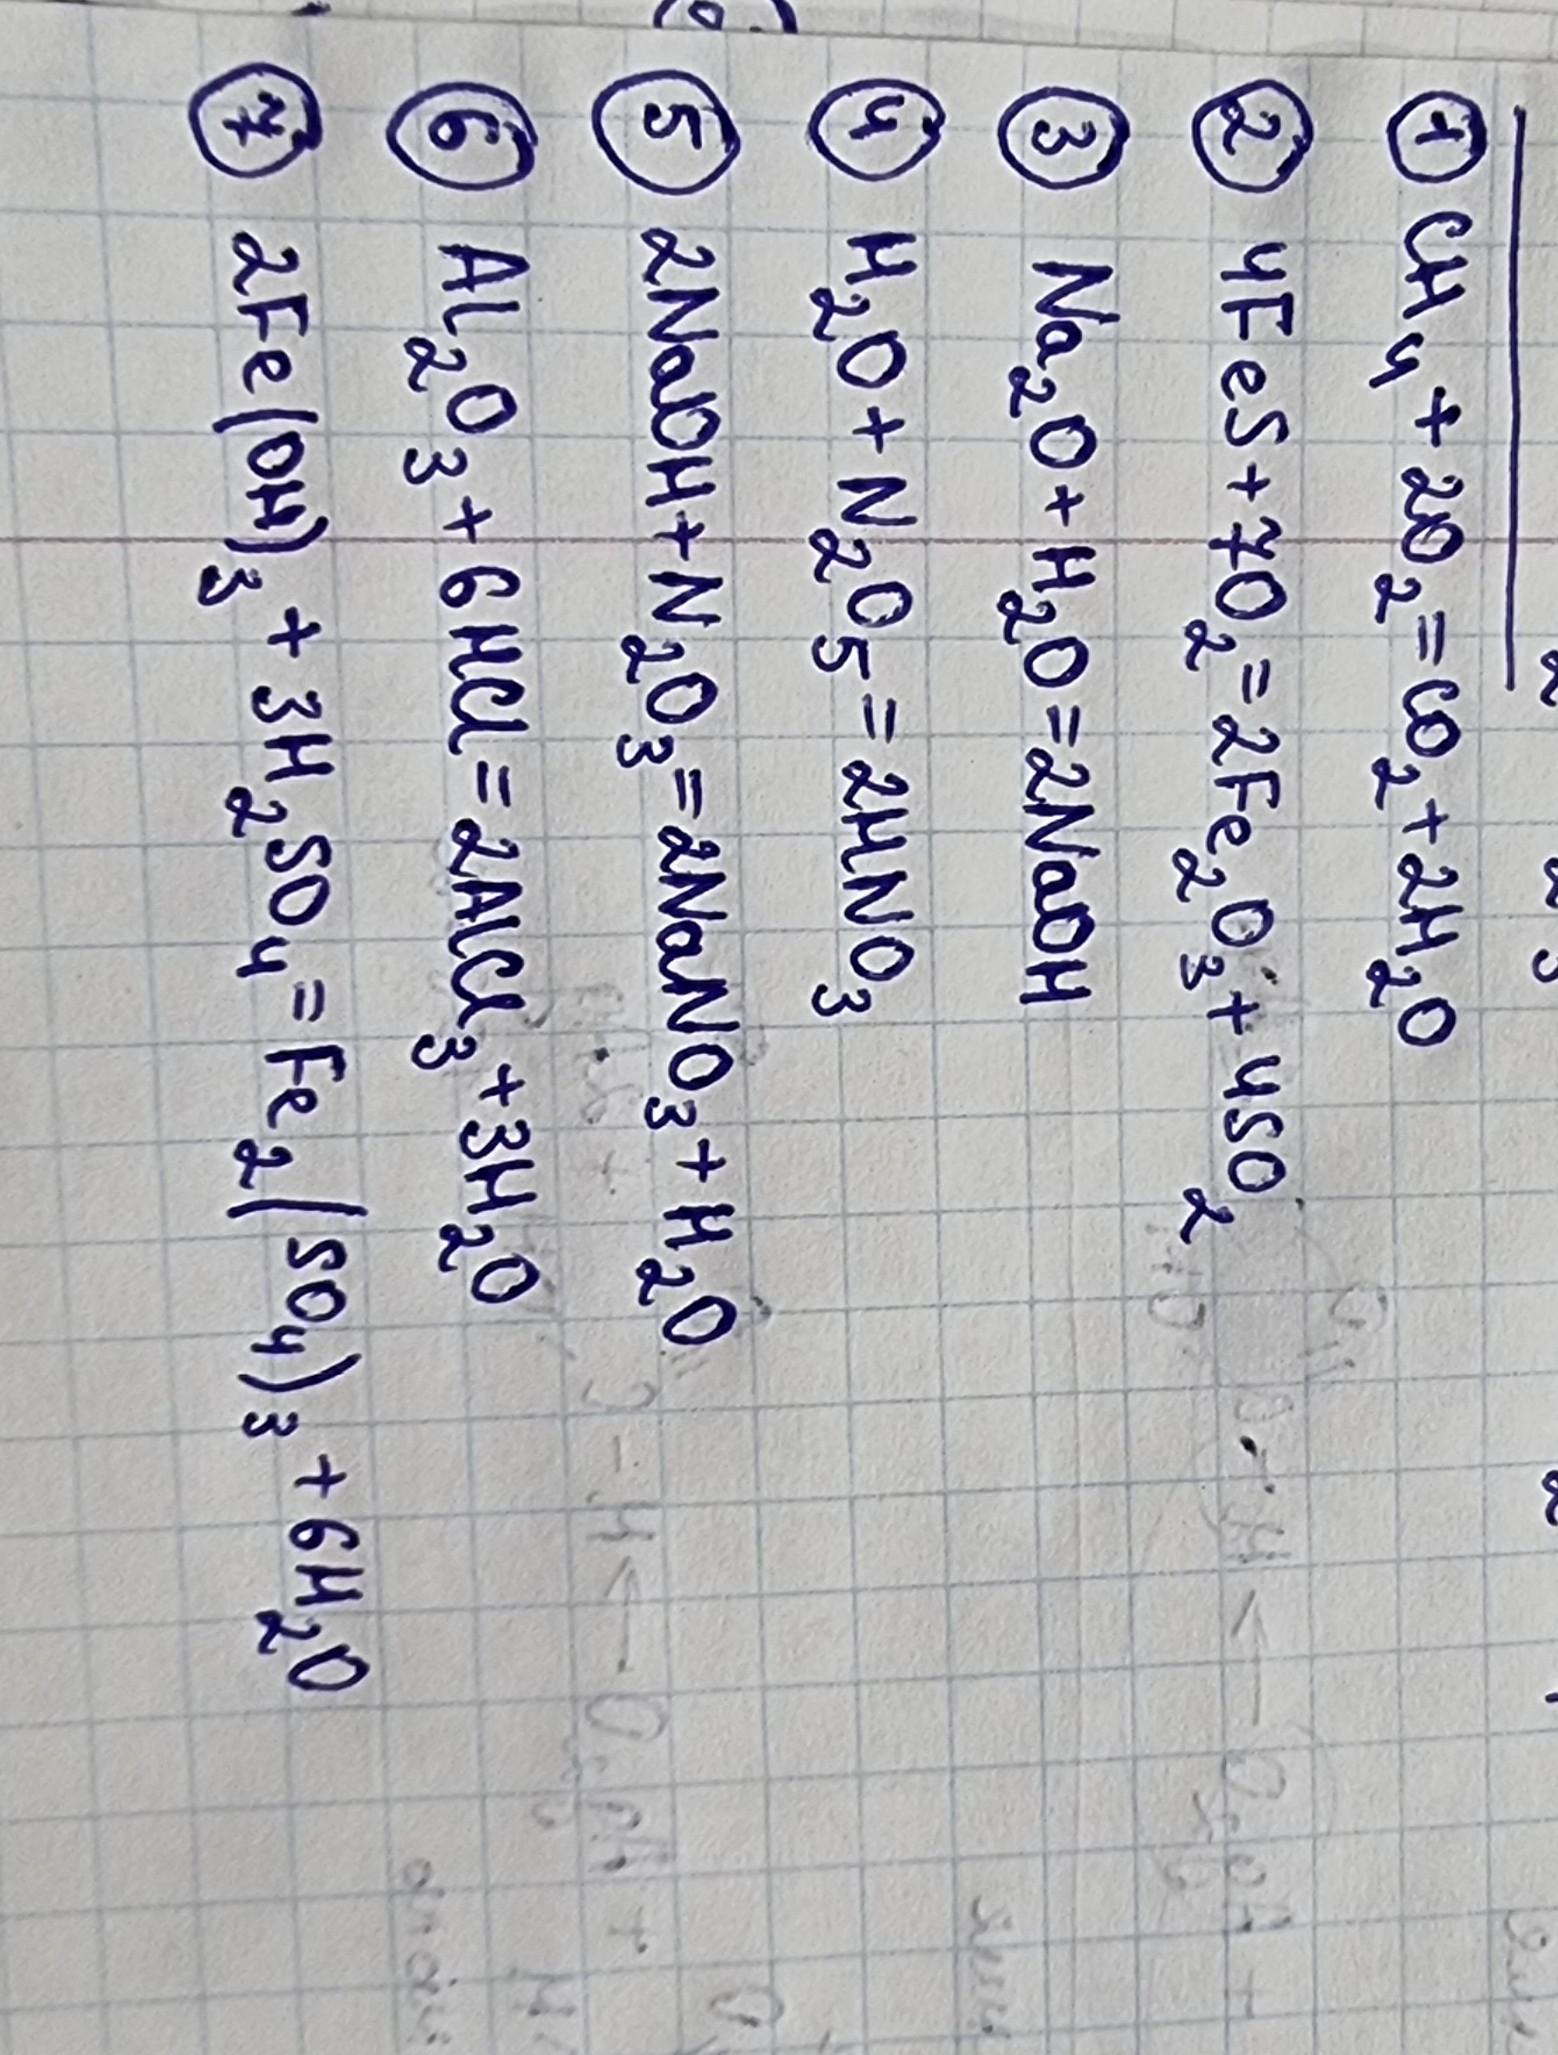 ① CH₄ + 2O₂ = CO₂ + 2H₂O
② 4FeS + 7O₂ = 2Fe₂O₃ + 4SO₂
③ Na₂O + H₂O = 2NaOH
④ H₂O + N₂O₅ = 2HNO₃
⑤ 2NaOH + N₂O₃ = 2NaNO₃ + H₂O
⑥ Al₂O₃ + 6HCl = 2AlCl₃ + 3H₂O
⑦ 2Fe(OH)₃ + 3H₂SO₄ = Fe₂(SO₄)₃ + 6H₂O